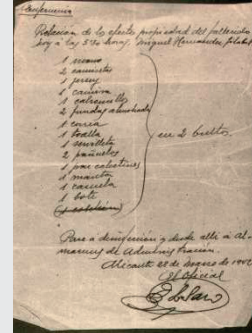 Enfermería
Relación de los efectos propiedad del fallecido
hoy a las 5'30 horas, Miguel Hernández Gilabert
1 mono
2 camisetas
1 jersey
1 camisa
1 calzoncillo
2 fundas almohada
1 correa
1 toalla
1 servilleta
2 pañuelos
1 par calcetines
1 manta
1 cazuela
1 bote
en 2 bultos
Pase a desinfección y desde allí a Al-
macenes de Administración.
Alicante 28 de marzo de 1942
El Oficial